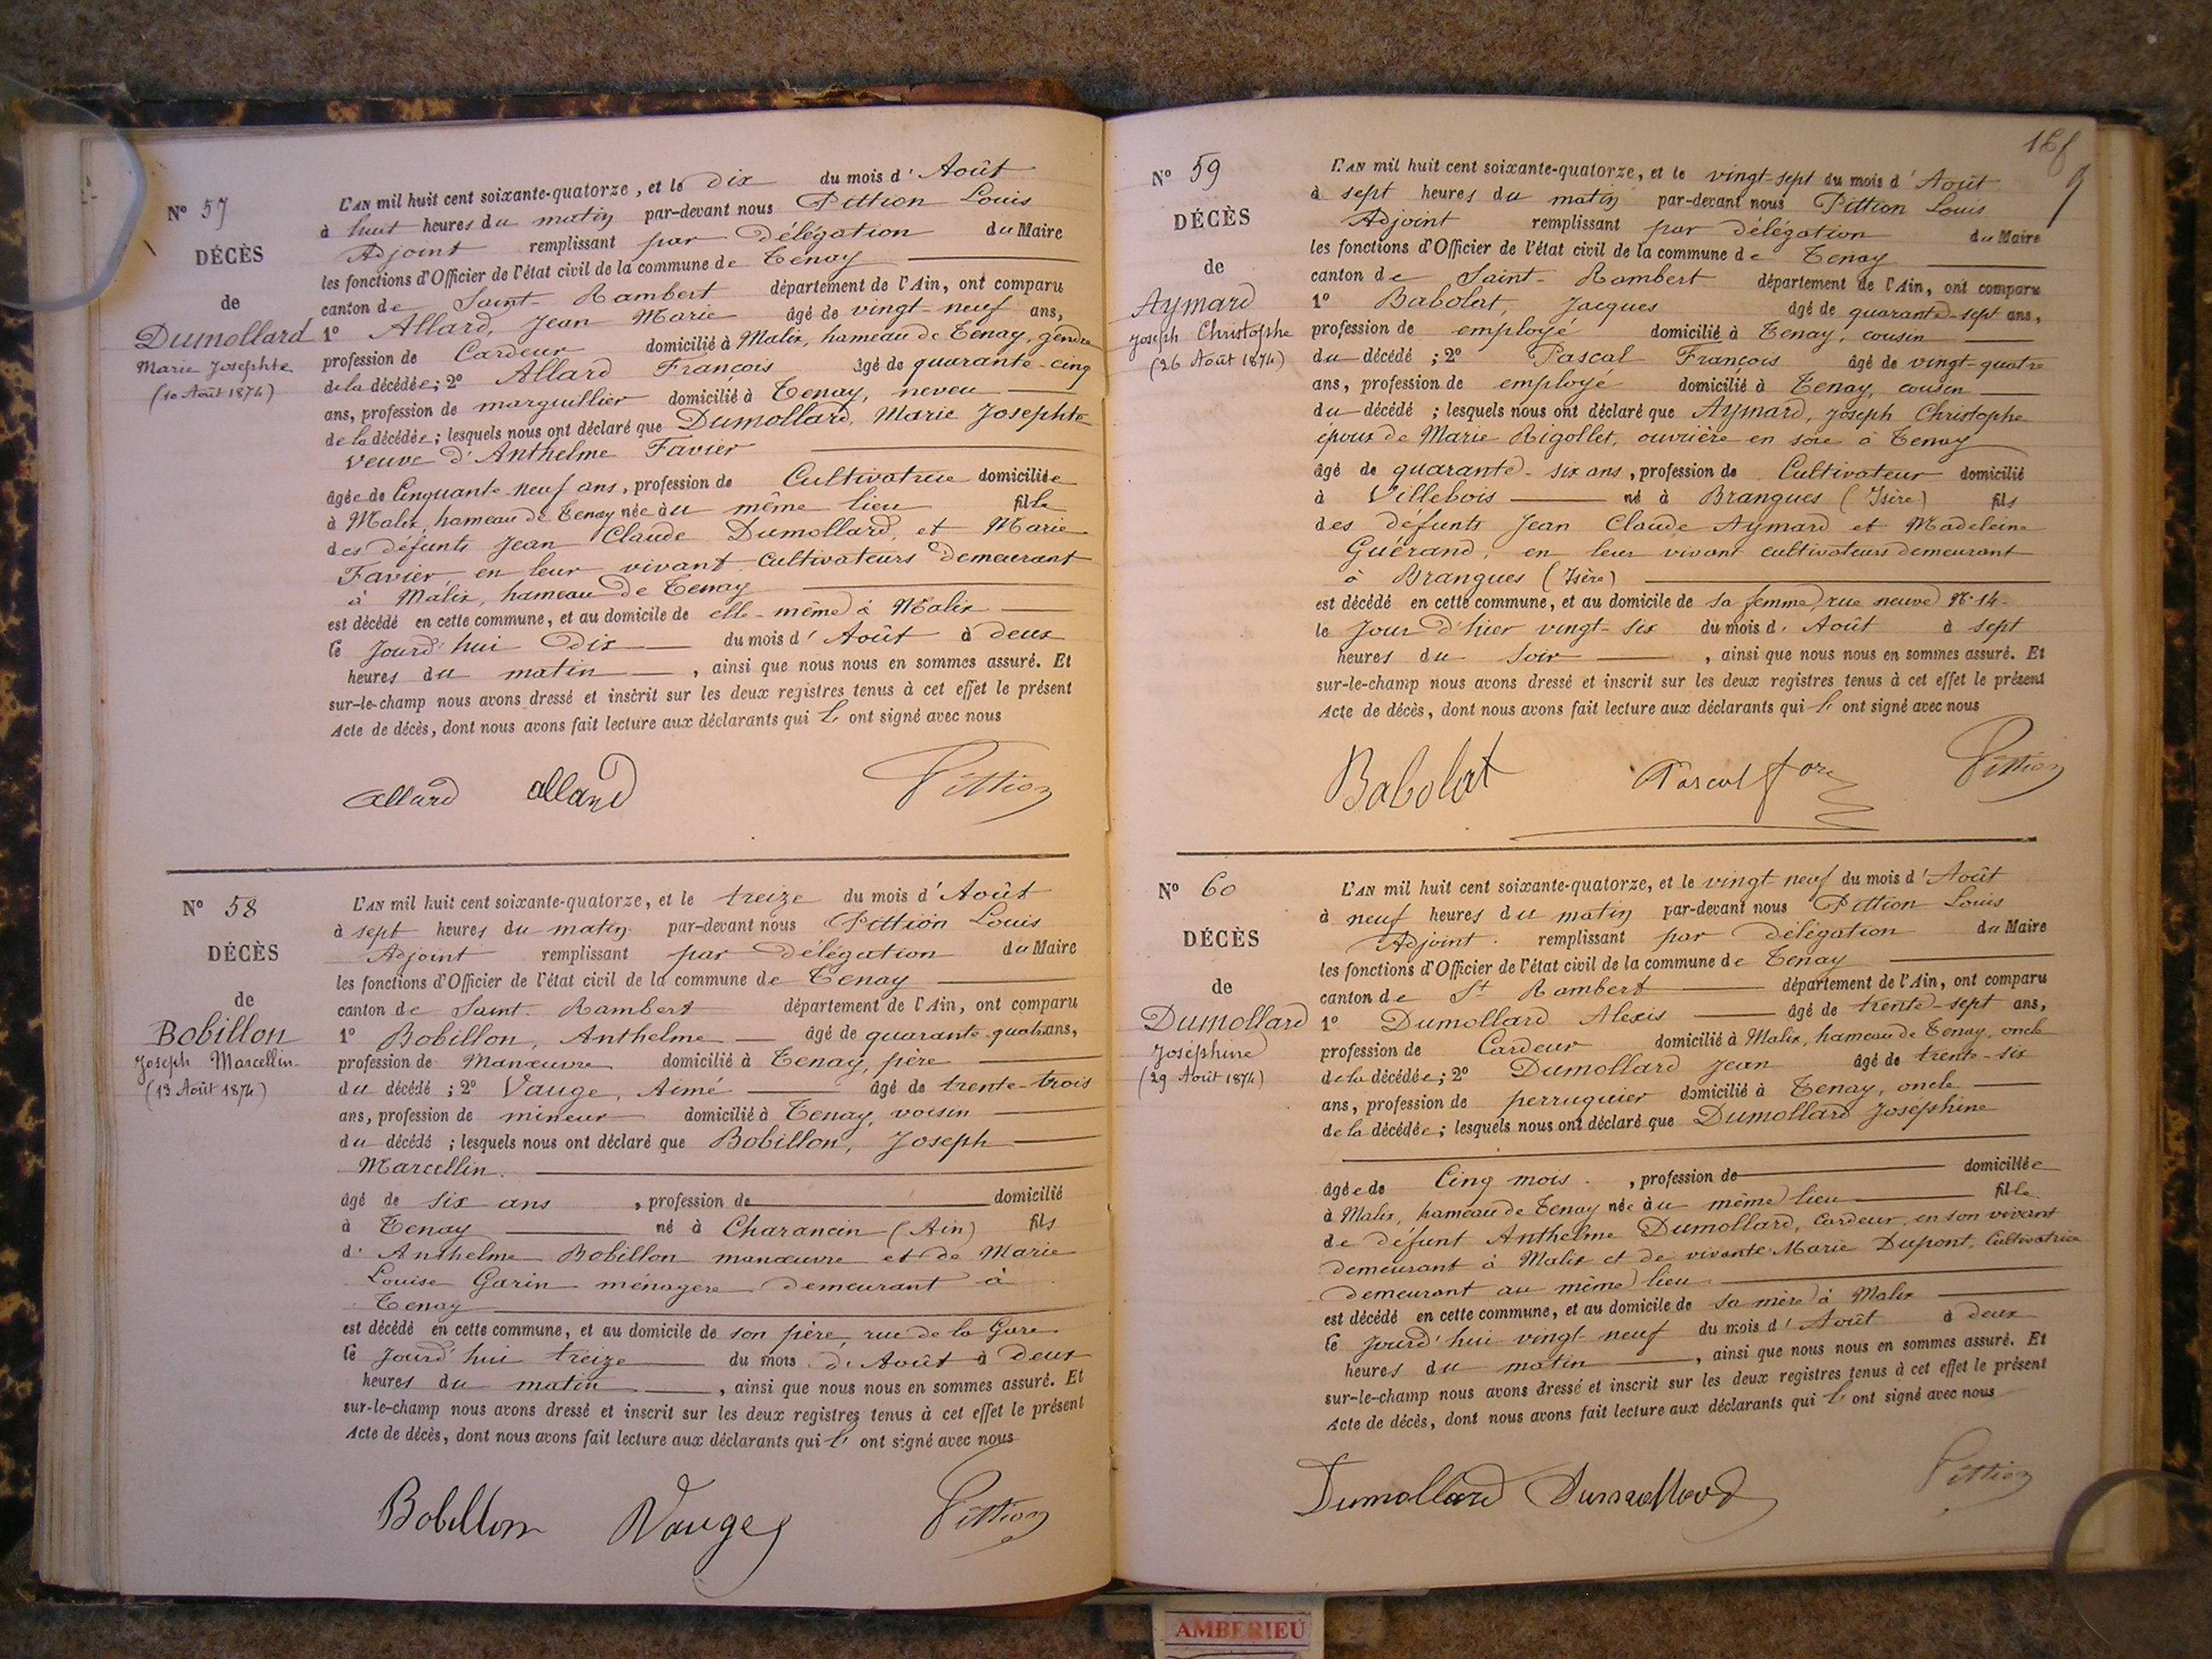 N° 57
DÉCÈS
de
Dumollard
Marie Josephte
(10 Août 1874)
L'AN mil huit cent soixante-quatorze, et le dix du mois d'Août
à huit heures du matin par-devant nous Pittion Louis
Adjoint remplissant par délégation du Maire
les fonctions d'Officier de l'état civil de la commune de Tenay
canton de Saint-Rambert département de l'Ain, ont comparu
1° Allard, Jean Marie âgé de vingt-neuf ans,
profession de Cardeur domicilié à Malix, hameau de Tenay, gendre
de la décédée; 2° Allard François âgé de quarante-cinq
ans, profession de marguillier domicilié à Tenay, neveu
de la décédée; lesquels nous ont déclaré que Dumollard, Marie Josephte
veuve d'Anthelme Favier
âgée de Cinquante neuf ans, profession de Cultivatrice domiciliée
à Malix, hameau de Tenay née au même lieu fille
des défunts Jean Claude Dumollard, et Marie
Favier, en leur vivant cultivateurs demeurant
à Malix, hameau de Tenay
est décédé en cette commune, et au domicile de elle-même à Malix
le Jourd'hui Dix du mois d'Août à deux
heures du matin, ainsi que nous nous en sommes assuré. Et
sur-le-champ nous avons dressé et inscrit sur les deux registres tenus à cet effet le présent
Acte de décès, dont nous avons fait lecture aux déclarants qui l' ont signé avec nous
allard allard Pittion
N° 58
DÉCÈS
de
Bobillon
Joseph Marcellin
(13 Août 1874)
L'AN mil huit cent soixante-quatorze, et le treize du mois d'Août
à sept heures du matin par-devant nous Pittion Louis
Adjoint remplissant par délégation du Maire
les fonctions d'Officier de l'état civil de la commune de Tenay
canton de Saint-Rambert département de l'Ain, ont comparu
1° Bobillon, Anthelme âgé de quarante-quatre ans,
profession de Manœuvre domicilié à Tenay, père
du décédé; 2° Vauge, Aimé âgé de trente-trois
ans, profession de mineur domicilié à Tenay, voisin
du décédé; lesquels nous ont déclaré que Bobillon, Joseph
Marcellin.
âgé de six ans, profession de domicilié
à Tenay né à Charancin (Ain) fils
d'Anthelme Bobillon manœuvre et de Marie
Louise Garin ménagère demeurant à
Tenay
est décédé en cette commune, et au domicile de son père, rue de la Gare
le Jourd'hui treize du mois d'Août à deux
heures du matin, ainsi que nous nous en sommes assuré. Et
sur-le-champ nous avons dressé et inscrit sur les deux registres tenus à cet effet le présent
Acte de décès, dont nous avons fait lecture aux déclarants qui l' ont signé avec nous
Bobillon Vauge Pittion
N° 59
DÉCÈS
de
Aymard
Joseph Christophe
(26 Août 1874)
L'AN mil huit cent soixante-quatorze, et le vingt-sept du mois d'Août
à sept heures du matin par-devant nous Pittion Louis
Adjoint remplissant par délégation du Maire
les fonctions d'Officier de l'état civil de la commune de Tenay
canton de Saint-Rambert département de l'Ain, ont comparu
1° Babolat, Jacques âgé de quarante-sept ans,
profession de employé domicilié à Tenay, cousin
du décédé; 2° Pascal François âgé de vingt-quatre
ans, profession de employé domicilié à Tenay, cousin
du décédé; lesquels nous ont déclaré que Aymard, Joseph Christophe
époux de Marie Rigollet, ouvrière en soie à Tenay
âgé de quarante-six ans, profession de Cultivateur domicilié
à Villebois né à Brangues (Isère) fils
des défunts Jean Claude Aymard et Madeleine
Guérand, en leur vivant cultivateurs demeurant
à Brangues (Isère)
est décédé en cette commune, et au domicile de sa femme, rue neuve N° 14
le Jour d'hier vingt-six du mois d'Août à sept
heures du soir, ainsi que nous nous en sommes assuré. Et
sur-le-champ nous avons dressé et inscrit sur les deux registres tenus à cet effet le présent
Acte de décès, dont nous avons fait lecture aux déclarants qui l' ont signé avec nous
Babolat Pascal Pittion
N° 60
DÉCÈS
de
Dumollard
Joséphine
(29 Août 1874)
L'AN mil huit cent soixante-quatorze, et le vingt neuf du mois d'Août
à neuf heures du matin par-devant nous Pittion Louis
Adjoint remplissant par délégation du Maire
les fonctions d'Officier de l'état civil de la commune de Tenay
canton de St Rambert département de l'Ain, ont comparu
1° Dumollard Alexis âgé de trente-sept ans,
profession de Cardeur domicilié à Malix, hameau de Tenay, oncle
de la décédée; 2° Dumollard Jean âgé de trente-six
ans, profession de perruquier domicilié à Tenay, oncle
de la décédée; lesquels nous ont déclaré que Dumollard Joséphine
âgée de Cinq mois, profession de domiciliée
à Malix, hameau de Tenay née au même lieu fille
de défunt Anthelme Dumollard, cardeur, en son vivant
demeurant à Malix et de vivante Marie Dupont, Cultivatrice
demeurant au même lieu
est décédé en cette commune, et au domicile de sa mère à Malix
le Jourd'hui vingt-neuf du mois d'Août à deux
heures du matin, ainsi que nous nous en sommes assuré. Et
sur-le-champ nous avons dressé et inscrit sur les deux registres tenus à cet effet le présent
Acte de décès, dont nous avons fait lecture aux déclarants qui l' ont signé avec nous
Dumollard Dumollard Pittion
AMBERIEU